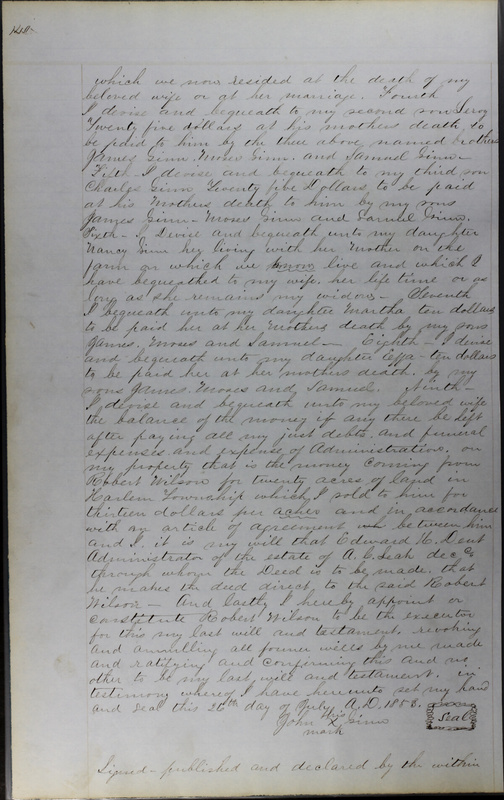 140
which we now resided at the death of my
beloved wife or at her mariage. Fourth
I devise and bequeath to my second son Leroy
Twenty five dollars at his mothers death, to
be paid to him by the thee above named brothers
James Ginn. Moses Ginn. and Samuel Ginn.
Fifth - I devise and bequeath to my third son
Charles Ginn Twenty five Dollars to be paid
at his Mothers death to him by my sons
James Ginn - Moses Ginn and Samuel Ginn.
Sixth - I Devise and bequeath unto my daughter
Nancy Ginn her living with her Mother on the
farm on which we now live and which I
have bequeathed to my wife. her life time or as
long as she remains my widow - Seventh
I bequeath unto my daughter Martha ten dollars
to be paid her at her mothers death by my sons
James. Moses and Samuel - Eighth - I devise
and bequeath unto my daughter Effa - ten dollars
to be paid her at her mothers death. by my
sons James. Moses and Samuel. Ninth -
I devise and bequeath unto my beloved wife
the balance of the money if any there be left
after paying all my just debts. and funeral
expenses and expense of Administration. on
my property that is the money coming from
Robert Wilson for twenty acres of land in
Harlem Township which I sold to him for
thirteen dollars per acres and in accordance
with an article of agreement between him
and I. it is my will that Edward H. Dent
Administrator of the estate of A. C. Leak dec
through whom the Deed is to be made. that
he makes the deed direct to the said Robert
Wilson - And lastly I hereby appoint or
constatute Robert Wilson to be the executor
for this my last will and testament, revoking
and annulling all former wills by me made
and ratifying and confirming this and no
other to be my last will and testament. in
testimony whereof I have hereunto set my hand
and seal this 26th day of July A.D. 1858.
John his X mark Ginn Seal
Signed - published and declared by the within